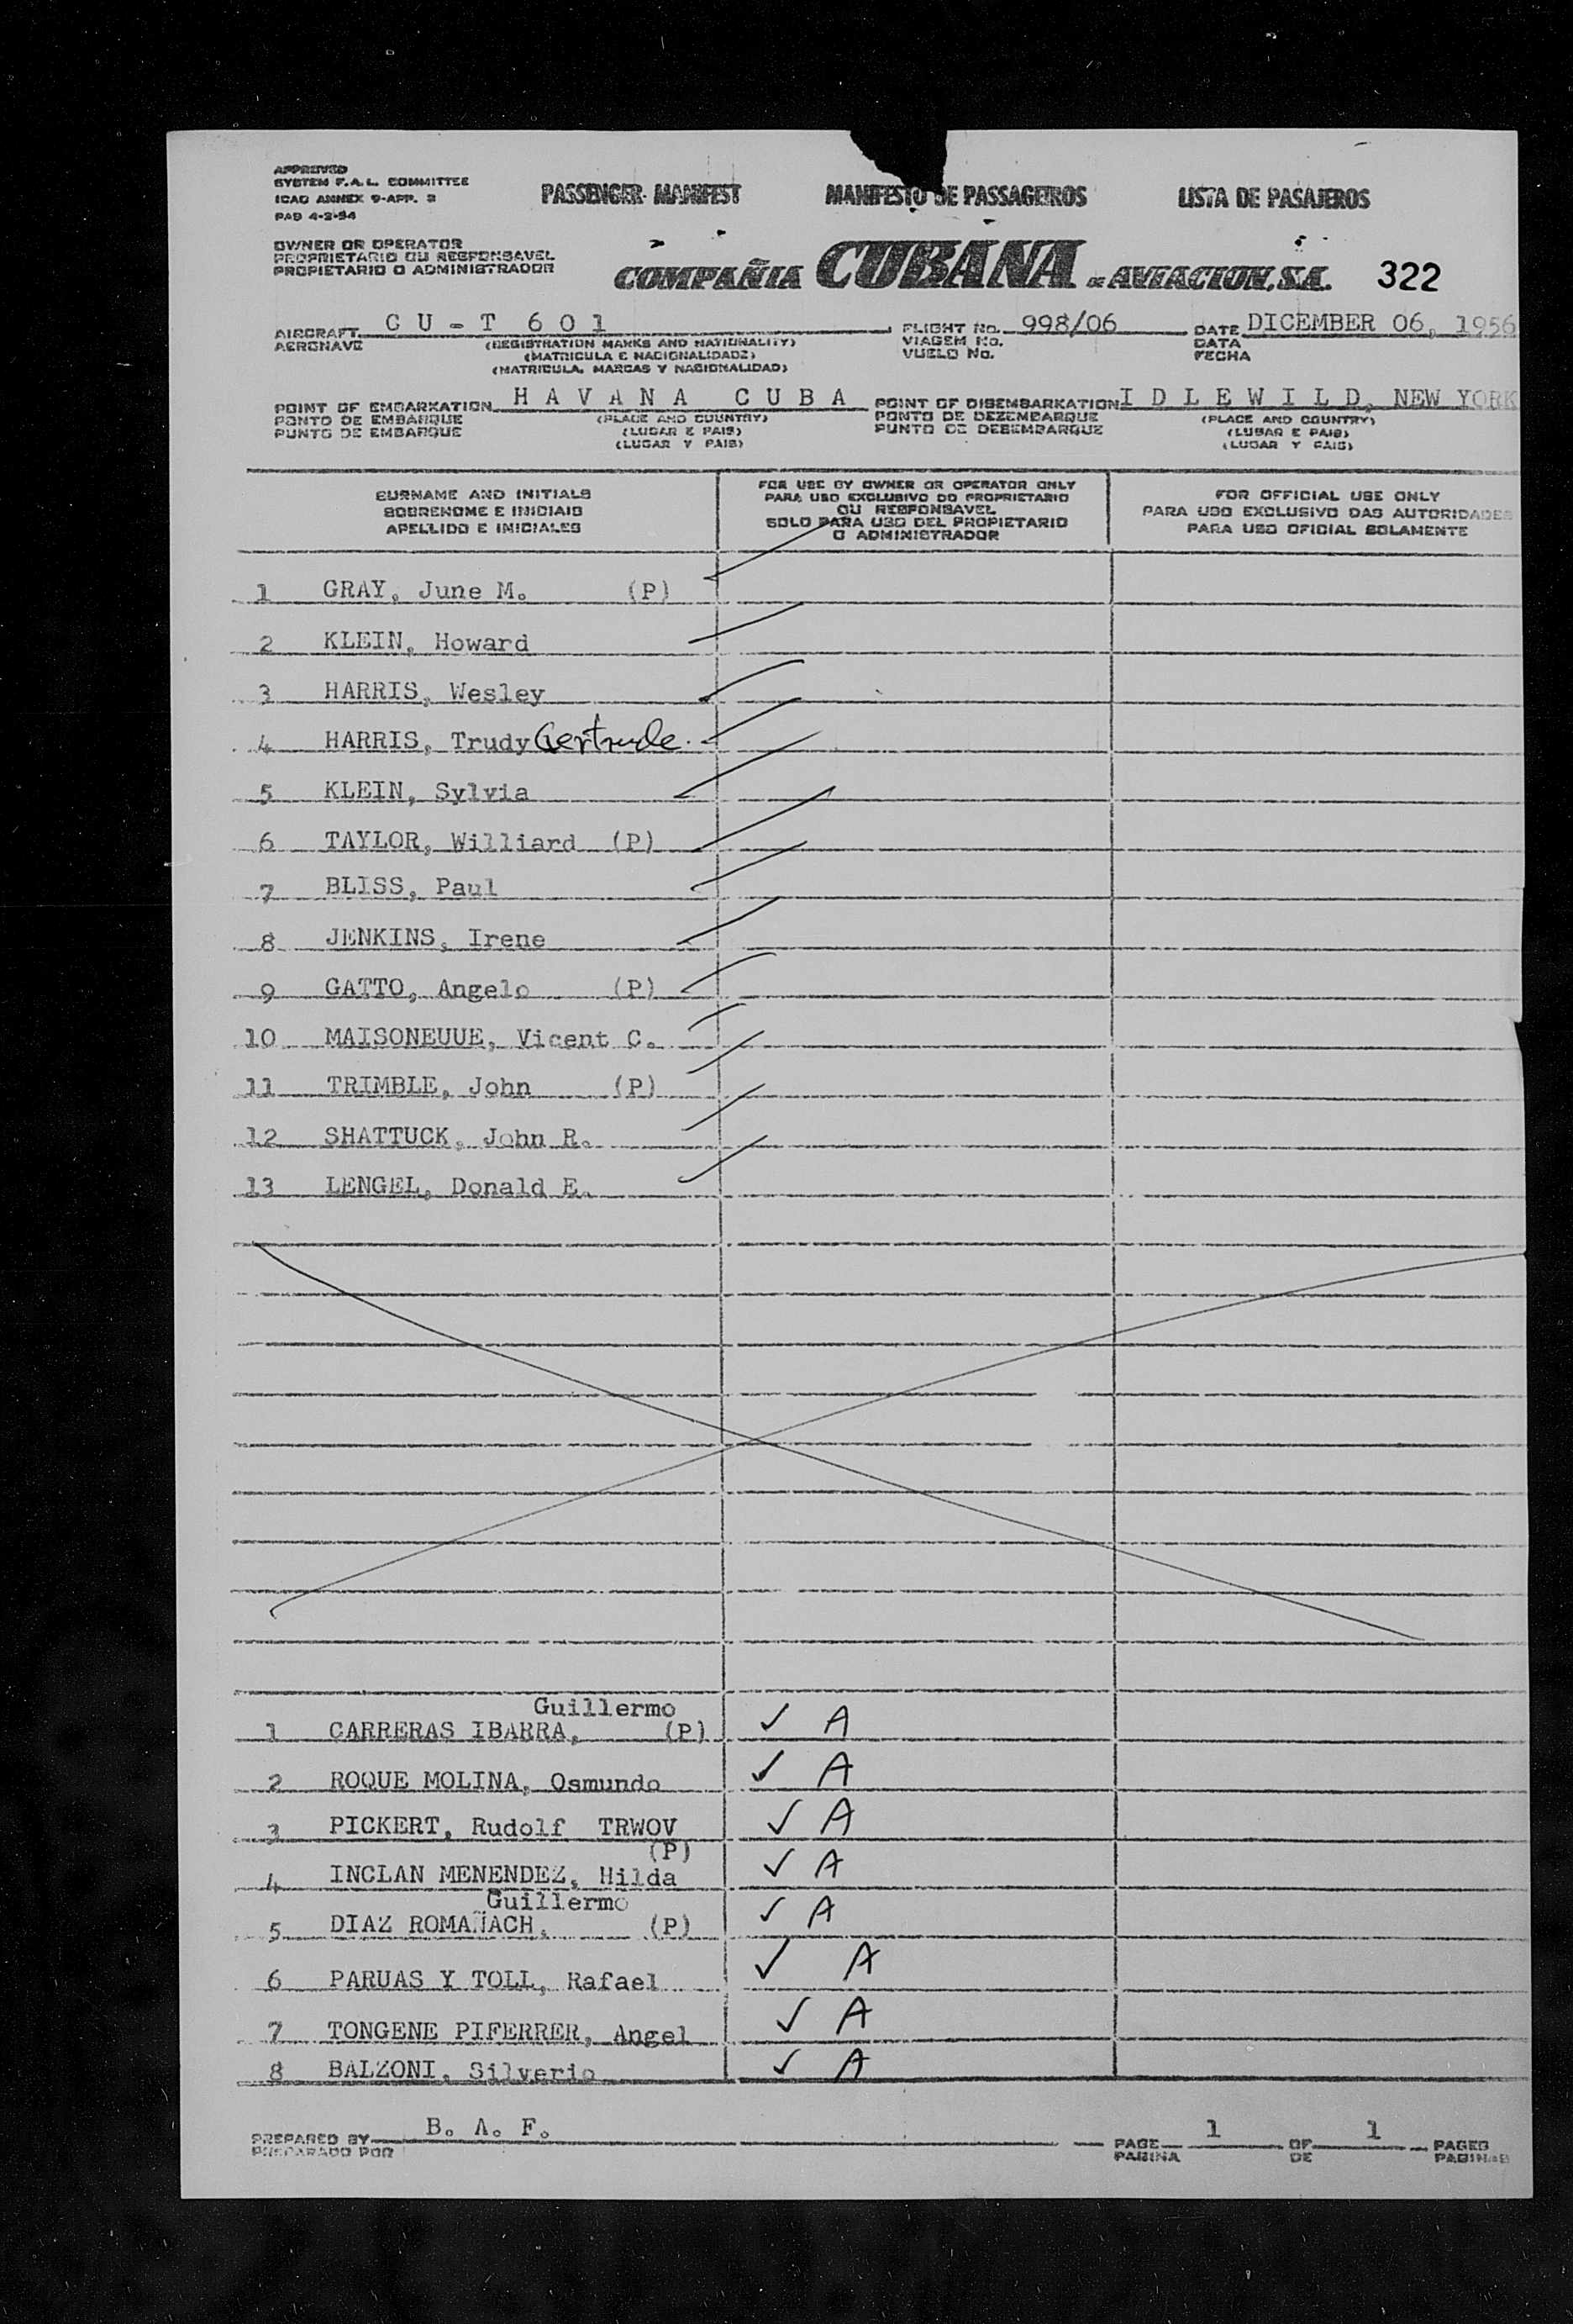 APPROVED
SYSTEM F.A.L. COMMITTEE
ICAO ANNEX 9-APP. 3
PAD 4-2-54
PASSENGER MANIFEST MANIFESTO DE PASSAGEIROS LISTA DE PASAJEROS
OWNER OR OPERATOR
PROPRIETARIO OU RESPONSAVEL
PROPIETARIO O ADMINISTRADOR
COMPAÑIA CUBANA DE AVIACION, S.A. 322
AIRCRAFT CU-T 601 FLIGHT No. 998/06 DATE DICEMBER 06, 1956
AERONAVE (REGISTRATION MARKS AND NATIONALITY) VIAGEM No. DATA
(MATRICULA E NACIONALIDADE) VUELO No. FECHA
(MATRICULA, MARCAS Y NACIONALIDAD)
POINT OF EMBARKATION HAVANA CUBA POINT OF DISEMBARKATION IDLEWILD, NEW YORK
PONTO DE EMBARQUE (PLACE AND COUNTRY) PONTO DE DEZEMBARQUE (PLACE AND COUNTRY)
PUNTO DE EMBARQUE (LUGAR E PAIS) PUNTO DE DESEMBARQUE (LUGAR E PAIS)
(LUGAR Y PAIS) (LUGAR Y PAIS)
SURNAME AND INITIALS
SOBRENOME E INICIAIS
APELLIDO E INICIALES
FOR USE BY OWNER OR OPERATOR ONLY
PARA USO EXCLUSIVO DO PROPRIETARIO
OU RESPONSAVEL
SOLO PARA USO DEL PROPIETARIO
O ADMINISTRADOR
FOR OFFICIAL USE ONLY
PARA USO EXCLUSIVO DAS AUTORIDADES
PARA USO OFICIAL SOLAMENTE
1 GRAY, June M. (P)
2 KLEIN, Howard
3 HARRIS, Wesley
4 HARRIS, Trudy Gertrude.
5 KLEIN, Sylvia
6 TAYLOR, Williard (P)
7 BLISS, Paul
8 JENKINS, Irene
9 GATTO, Angelo (P)
10 MAISONEUUE, Vicent C.
11 TRIMBLE, John (P)
12 SHATTUCK, John R.
13 LENGEL, Donald E.
Guillermo
1 CARRERAS IBARRA, (P) ✓ A
2 ROQUE MOLINA, Osmundo ✓ A
3 PICKERT, Rudolf TRWOV ✓ A
(P)
4 INCLAN MENENDEZ, Hilda ✓ A
Guillermo
5 DIAZ ROMAÑACH, (P) ✓ A
6 PARUAS Y TOLL, Rafael ✓ A
7 TONGENE PIFERRER, Angel ✓ A
8 BALZONI, Silverio ✓ A
PREPARED BY B. A. F. PAGE 1 OF 1 PAGES
PREPARADO POR PAGINA DE PAGINAS